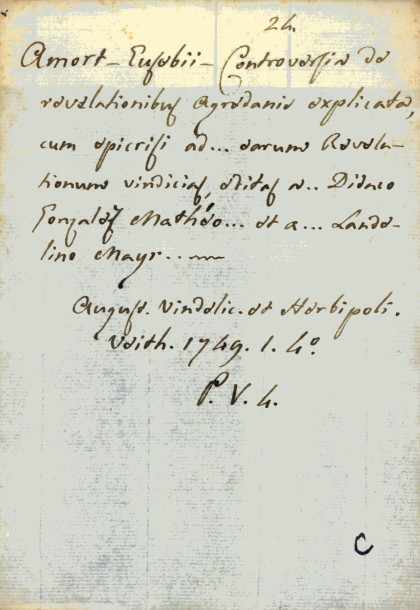 24.
Amort – Eusebii – Controversia de
revelationibus Agredanis explicata,
cum epicrisi ad... earum Revela-
tionum vindicias, editas a.. Didaco
Gonzalez Mathéo... et a... Lande-
lino Mayr...
August. Vindelic. et Herbipoli.
Veith. 1749. 1. 4º.
P. V. 4.
C